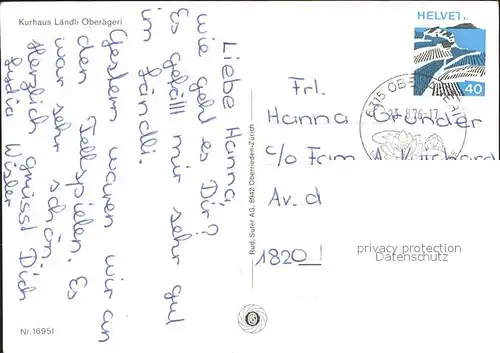 Kurhaus Ländli Oberägeri
Liebe Hanna,
wie geht es Dir?
Es gefällt mir sehr gut
im Ländli.
Gestern waren wir an
den Tellspielen. Es
war sehr schön.
Herzlich grüsst Dich
Nr. 16951
Rud. Suter AG, 8942 Oberrieden-Zürich
HELVET
40
6315 OBE
Frl.
Hanna Gründer
c/o Fam
Av. d
1820
privacy protection
Datenschutz